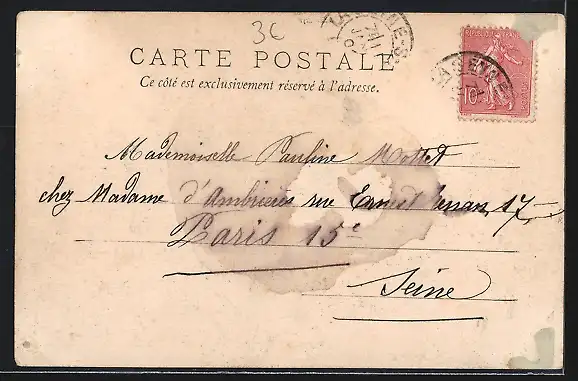 3C
CARTE POSTALE
Ce côté est exclusivement réservé à l'adresse.
10
Mademoiselle Pauline Mottet
chez Madame d'Ambrières rue Ernest Renan, 17,
Paris 15e
Seine